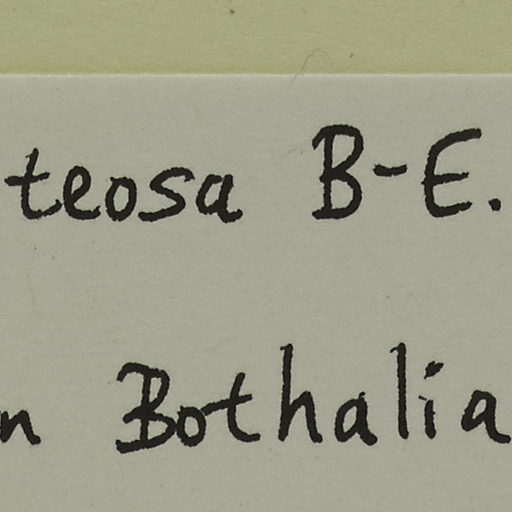 teosa B-E.
n Bothalia